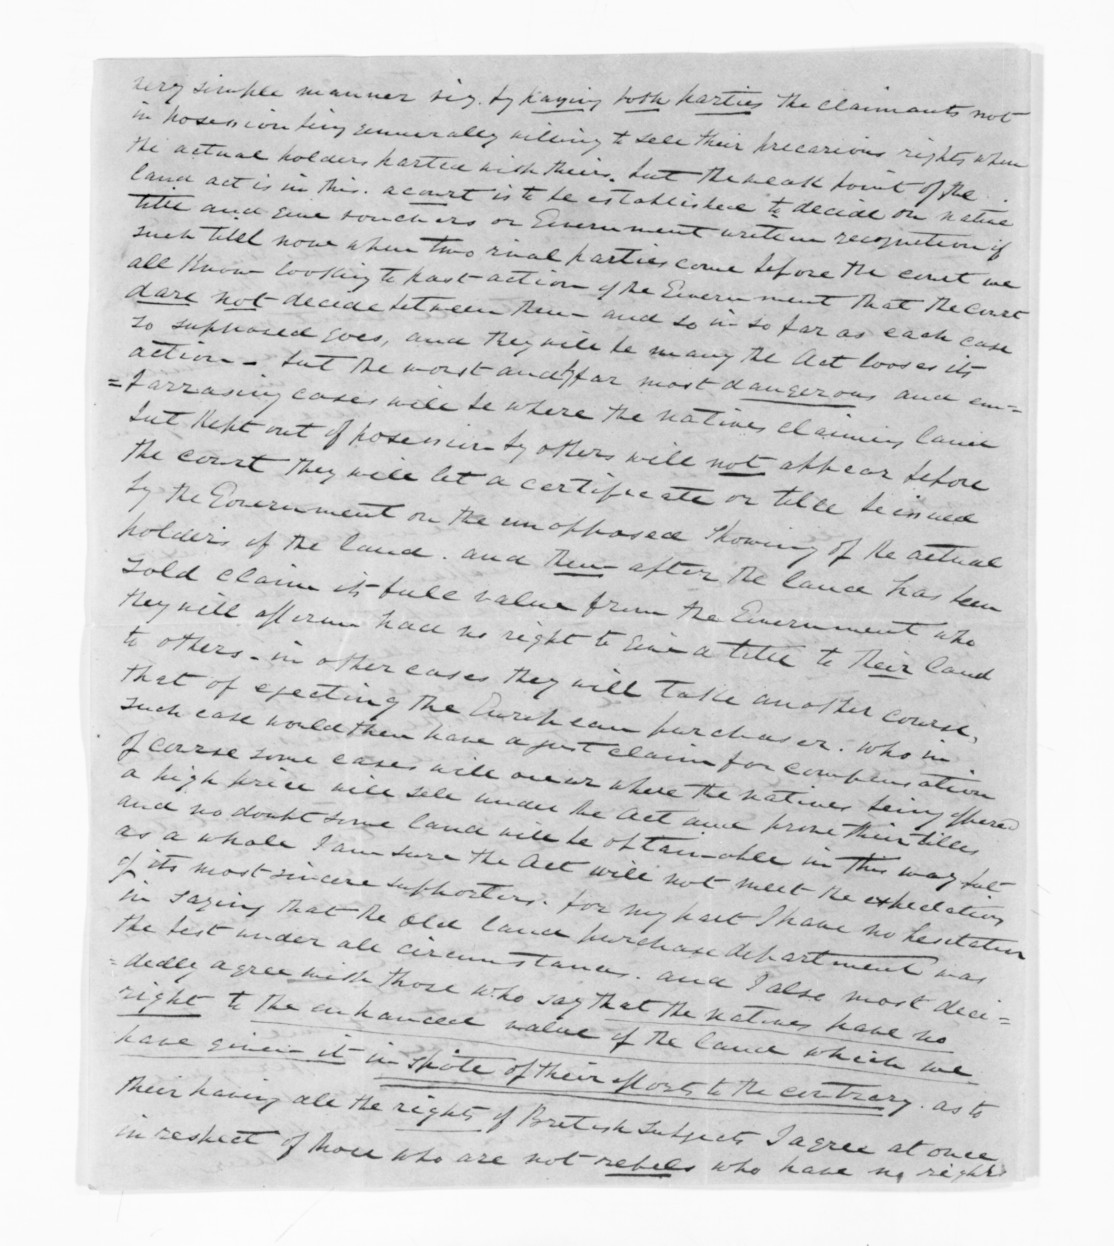 very simple manner viz. by paying both parties the claimants not
in posession being generally willing to sell their precarious rights when
the actual holders parted with theirs. but the weak point of the
land act is in this. a court is to be established to decide on native
title and give vouchers or Government written recognition of
such till now when two rival parties come before the court we
all know looking to past action of the Government that the court
dare not decide between them – and so in so far as each case
so supposed goes, and they will be many the Act looses its
action – but the worst and by far most dangerous and em=
=barrasing cases will be where the natives claiming land
but kept out of posession by others will not appear before
the court they will let a certificate or title be issued
by the Government on the unopposed showing of the actual
holders of the land. and then after the land has been
sold claim its full value from the Government who
they will affirm had no right to give a title to their land
to others – in other cases they will take another course,
that of ejecting the European purchaser. who in
such case would then have a just claim for compensation
of course some cases will occur where the natives being offered
a high price will sell under the Act and prove their titles
and no doubt some land will be obtainable in this way but
as a whole I am sure the Act will not meet the expectations
of its most sincere supporters. for my part I have no hesitation
in saying that the old land purchase department was
the best under all circumstances. and I also most deci=
=dedly agree with those who say that the natives have no
right to the enhanced value of the land which we
have given it in spite of their efforts to the contrary. as to
their having all the rights of British Subjects I agree at once
in respect of those who are not rebels who have no rights